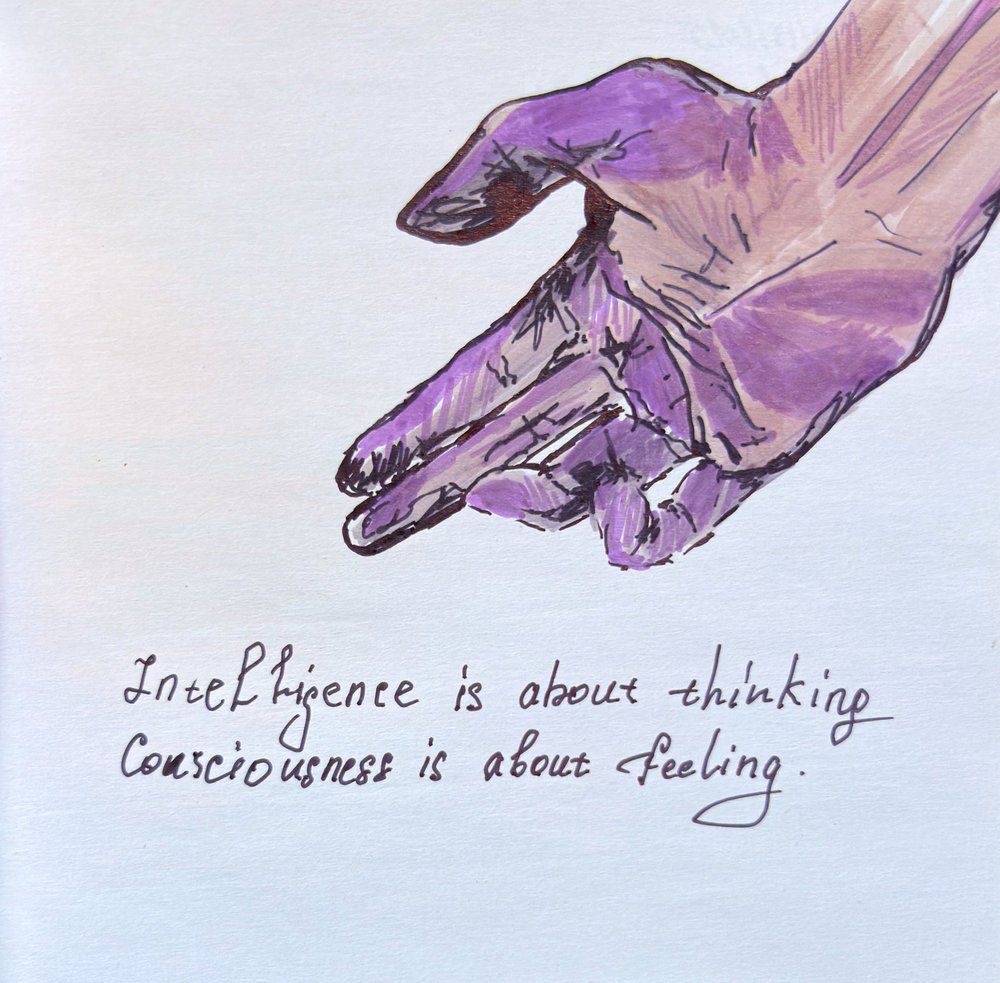 Intelligence is about thinking
Consciousness is about feeling.